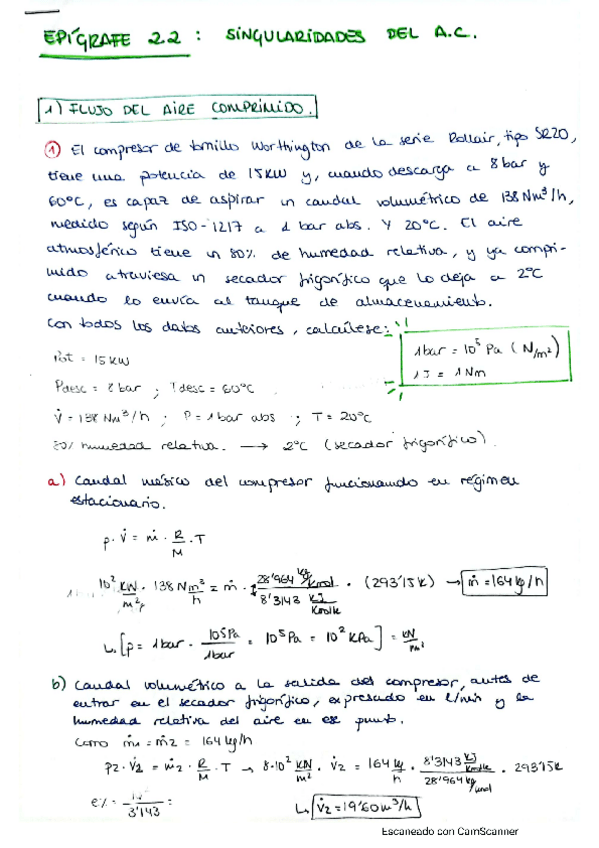 EPÍGRAFE 2.2 : SINGULARIDADES DEL A.C.
1) FLUJO DEL AIRE COMPRIMIDO.
1) El compresor de tornillo Worthington de la serie Rollair, tipo SR20,
tiene una potencia de 15KW y, cuando descarga a 8 bar y
60ºC, es capaz de aspirar un caudal volumétrico de 138 Nm³/h,
medido según ISO-1217 a 1 bar abs. Y 20ºC. El aire
atmosférico tiene un 80% de humedad relativa, y ya compri-
mido atraviesa un secador frigorífico que lo deja a 2ºC
cuando lo envía al tanque de almacenamiento.
Con todos los datos anteriores, calcúlese:
1 bar = 10⁵ Pa (N/m²)
1 J = 1 Nm
Pot = 15 KW
Pdesc = 8 bar ; Tdesc = 60ºC
V̇ = 138 Nm³/h ; P = 1 bar abs ; T = 20ºC
80% humedad relativa. → 2ºC (secador frigorífico).
a) Caudal másico del compresor funcionando en régimen
estacionario.
p · V̇ = ṁ · R/M · T
10² KN/m² · 138 Nm³/h = ṁ · 28'964 kg/kmol / 8'3143 KJ/KmolK · (293'15 K) → ṁ = 164 kg/h
↳ [p = 1 bar · 10⁵Pa/1bar = 10⁵ Pa = 10² KPa] = KN/m²
b) Caudal volumétrico a la salida del compresor, antes de
entrar en el secador frigorífico, expresado en l/min y la
humedad relativa del aire en ese punto.
Como ṁ1 = ṁ2 = 164 kg/h
P2 · V̇2 = ṁ2 · R/M · T → 8·10² KN/m² · V̇2 = 164 kg/h · 8'3143 KJ/KmolK / 28'964 kg/kmol · 293'15K
e% = / 3'143 =
↳ V̇2 = 19'60 m³/h
Escaneado con CamScanner